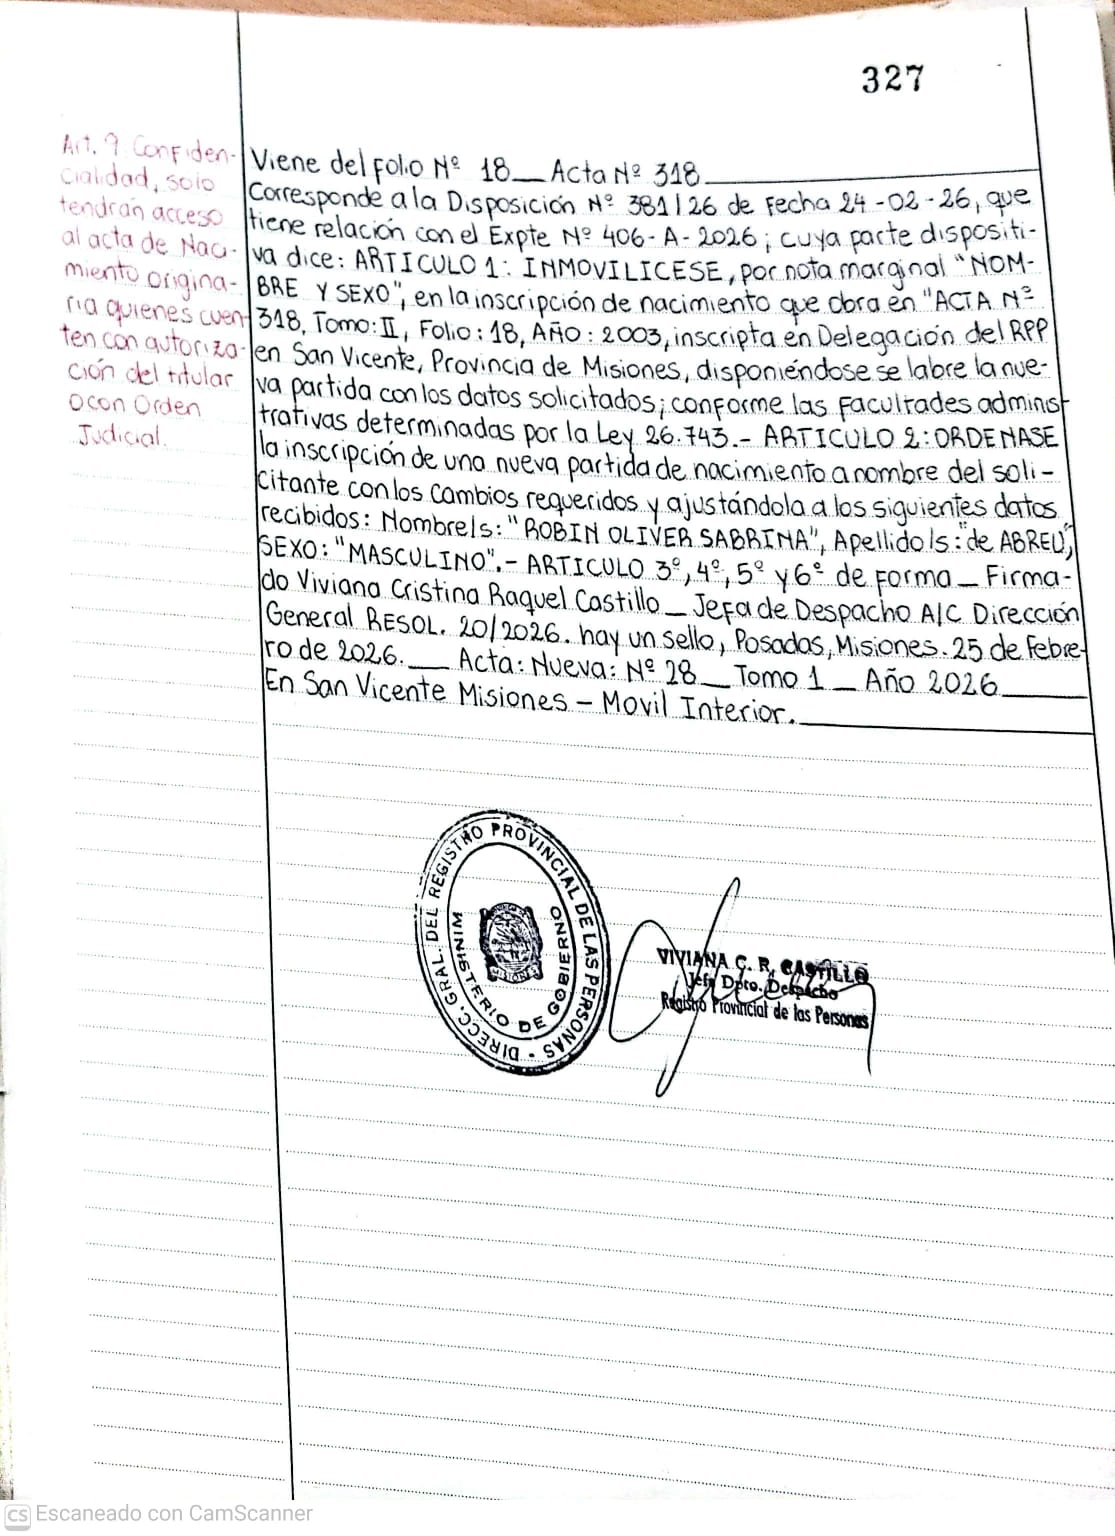 327
Art. 9 Confiden-
cialidad, solo
tendrán acceso
al acta de Naci-
miento origina-
ria quienes cuen
ten con autoriza-
ción del titular
O con Orden
Judicial.
Viene del folio Nº 18__ Acta Nº 318
Corresponde a la Disposición Nº 381/26 de Fecha 24-02-26, que
tiene relación con el Expte Nº 406-A-2026; cuya parte dispositi-
va dice: ARTICULO 1: INMOVILICESE, por nota marginal "NOM-
BRE Y SEXO", en la inscripción de nacimiento que obra en "ACTA Nº
318, Tomo: II, Folio: 18, AÑO: 2003, inscripta en Delegación del RPP
en San Vicente, Provincia de Misiones, disponiéndose se labre la nue-
va partida con los datos solicitados; conforme las facultades adminis-
trativas determinadas por la Ley 26.743.- ARTICULO 2: ORDENASE
la inscripción de una nueva partida de nacimiento a nombre del soli-
citante con los cambios requeridos y ajustándola a los siguientes datos
recibidos: Nombre/s: "ROBIN OLIVER SABRINA", Apellido/s: "de ABREU",
SEXO: "MASCULINO".- ARTICULO 3º, 4º, 5º y 6º de forma _ Firma-
do Viviana Cristina Raquel Castillo _ Jefa de Despacho A/C Dirección
General RESOL. 20/2026. hay un sello, Posadas, Misiones. 25 de Febre-
ro de 2026.__ Acta: Nueva: Nº 28 _ Tomo 1 _ Año 2026
En San Vicente Misiones - Movil Interior.
DIRECC. GRAL. DEL REGISTRO PROVINCIAL DE LAS PERSONAS
MINISTERIO DE GOBIERNO
MISIONES
VIVIANA C. R. CASTILLO
Jefa Dpto. Despacho
Registro Provincial de las Personas
CS Escaneado con CamScanner